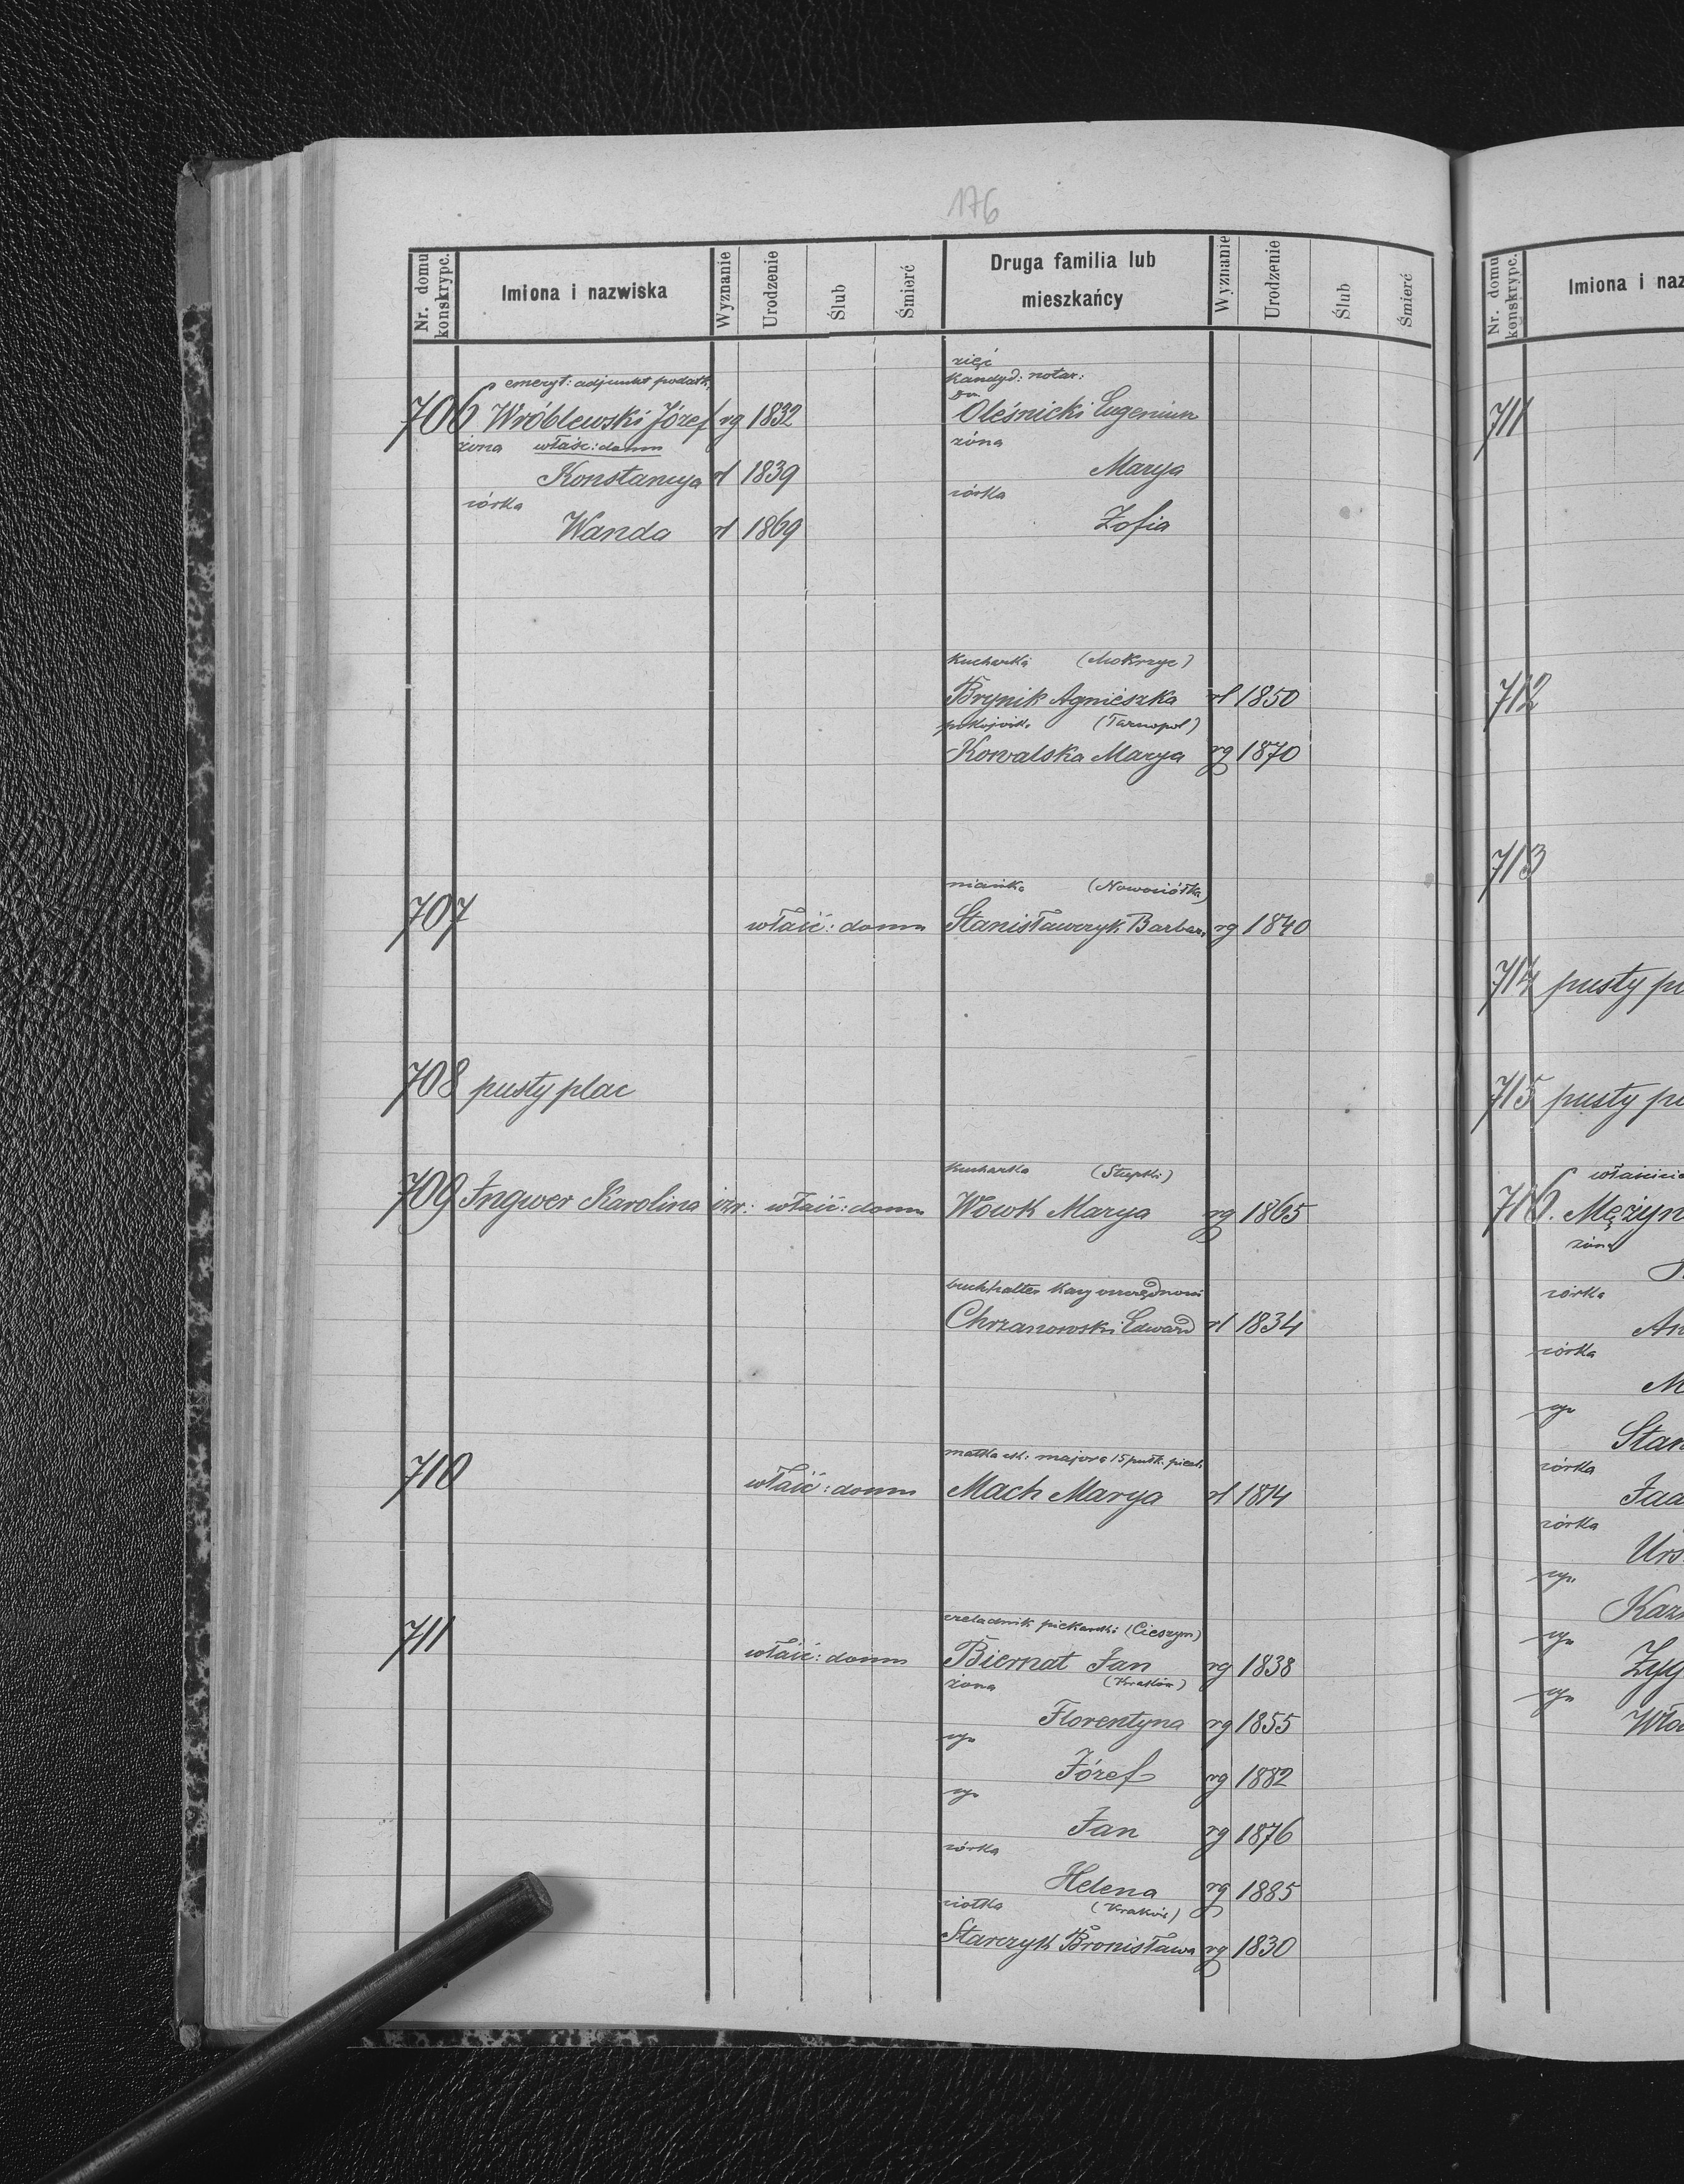 176
Nr. domu konskrypc.
Imiona i nazwiska
Wyznanie
Urodzenie
Ślub
Śmierć
Druga familia lub mieszkańcy
Wyznanie
Urodzenie
Ślub
Śmierć
emeryt: adjunkt podatk.
706 Wróblewski Józef rg 1832
żona właśc: domu
Konstancya rł 1839
córka
Wanda rł 1869
zięć
kandyd: notar:
Dr.
Oleśnicki Eugeniusz
żona
Marya
córka
Zofia
kucharka (Mokrzyc)
Brynik Agnieszka rł 1850
pokojwk. (Tarnopol)
Kowalska Marya rg 1870
niańka (Nowosiółka)
707 właśc: domu Stanisławczyk Barbar. rg 1840
708 pusty plac
kucharka (Stupki)
709 Ingwer Karolina izr: właśc: domu Wowk Marya rg 1865
buchhalter
Chrzanowski Edward rł 1834
matka major 15 pułk. piech.
710 właśc: domu Mach Marya rł 1814
czeladnik piekarski (Cieszyn)
711 właśc: domu Biernat Jan rg 1838
żona (Kraków)
Florentyna rg 1855
syn
Józef rg 1882
syn
Jan rg 1876
córka
Helena rg 1885
ciotka (Kraków)
Starczyk Bronisława rg 1830
Nr. domu konskrypc.
Imiona i naz
711
712
713
714 pusty pl
715 pusty pl
właścicie
716. Mężyn
żona
córka
An
córka
M
syn
Stan
córka
Jad
córka
Urs
syn
Kaz
syn
Zyg
syn
Wło